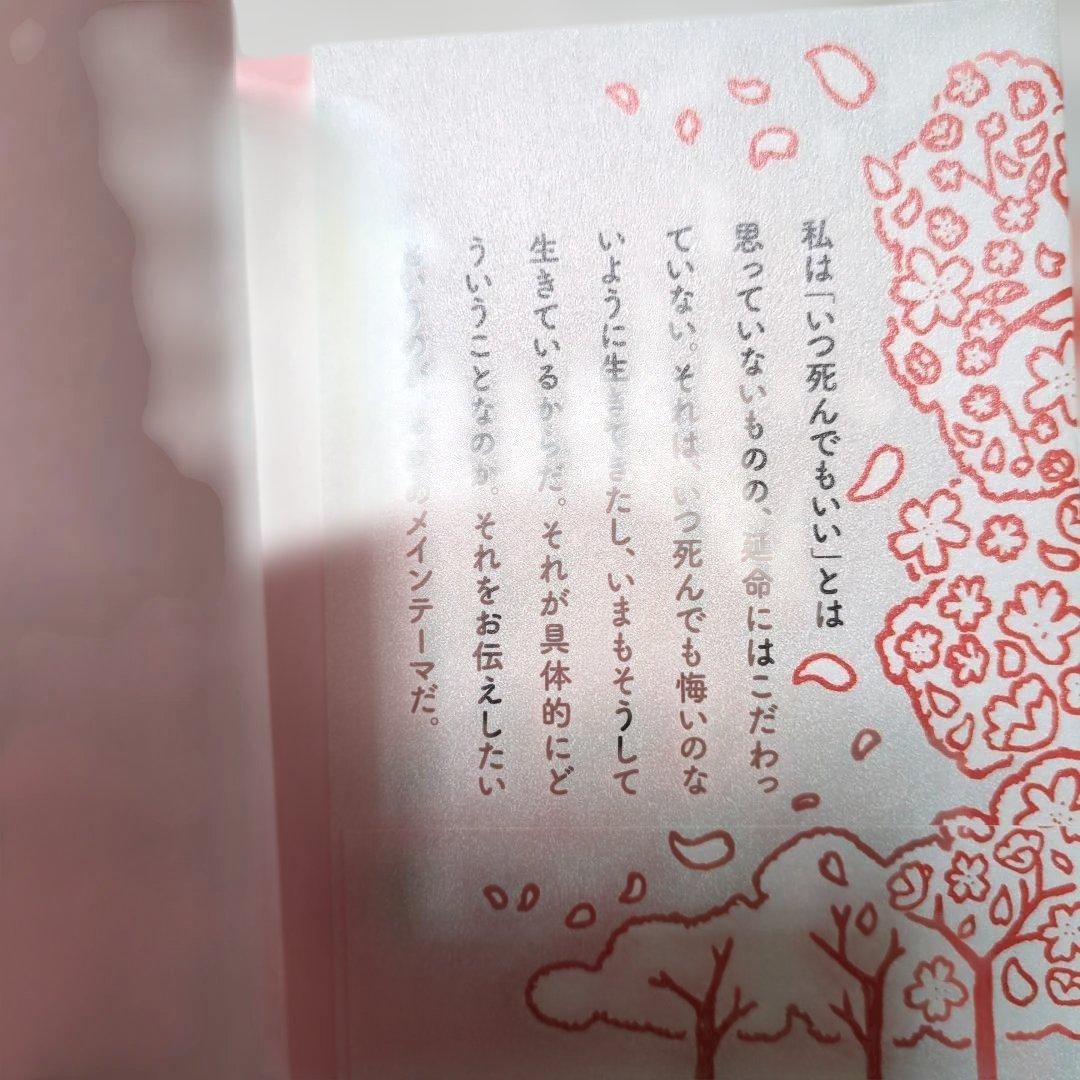 私は「いつ死んでもいい」とは
思っていないものの、延命にはこだわっ
ていない。それは、いつ死んでも悔いのな
いように生きてきたし、いまもそうして
生きているからだ。それが具体的にど
ういうことなのか。それをお伝えしたい
のメインテーマだ。